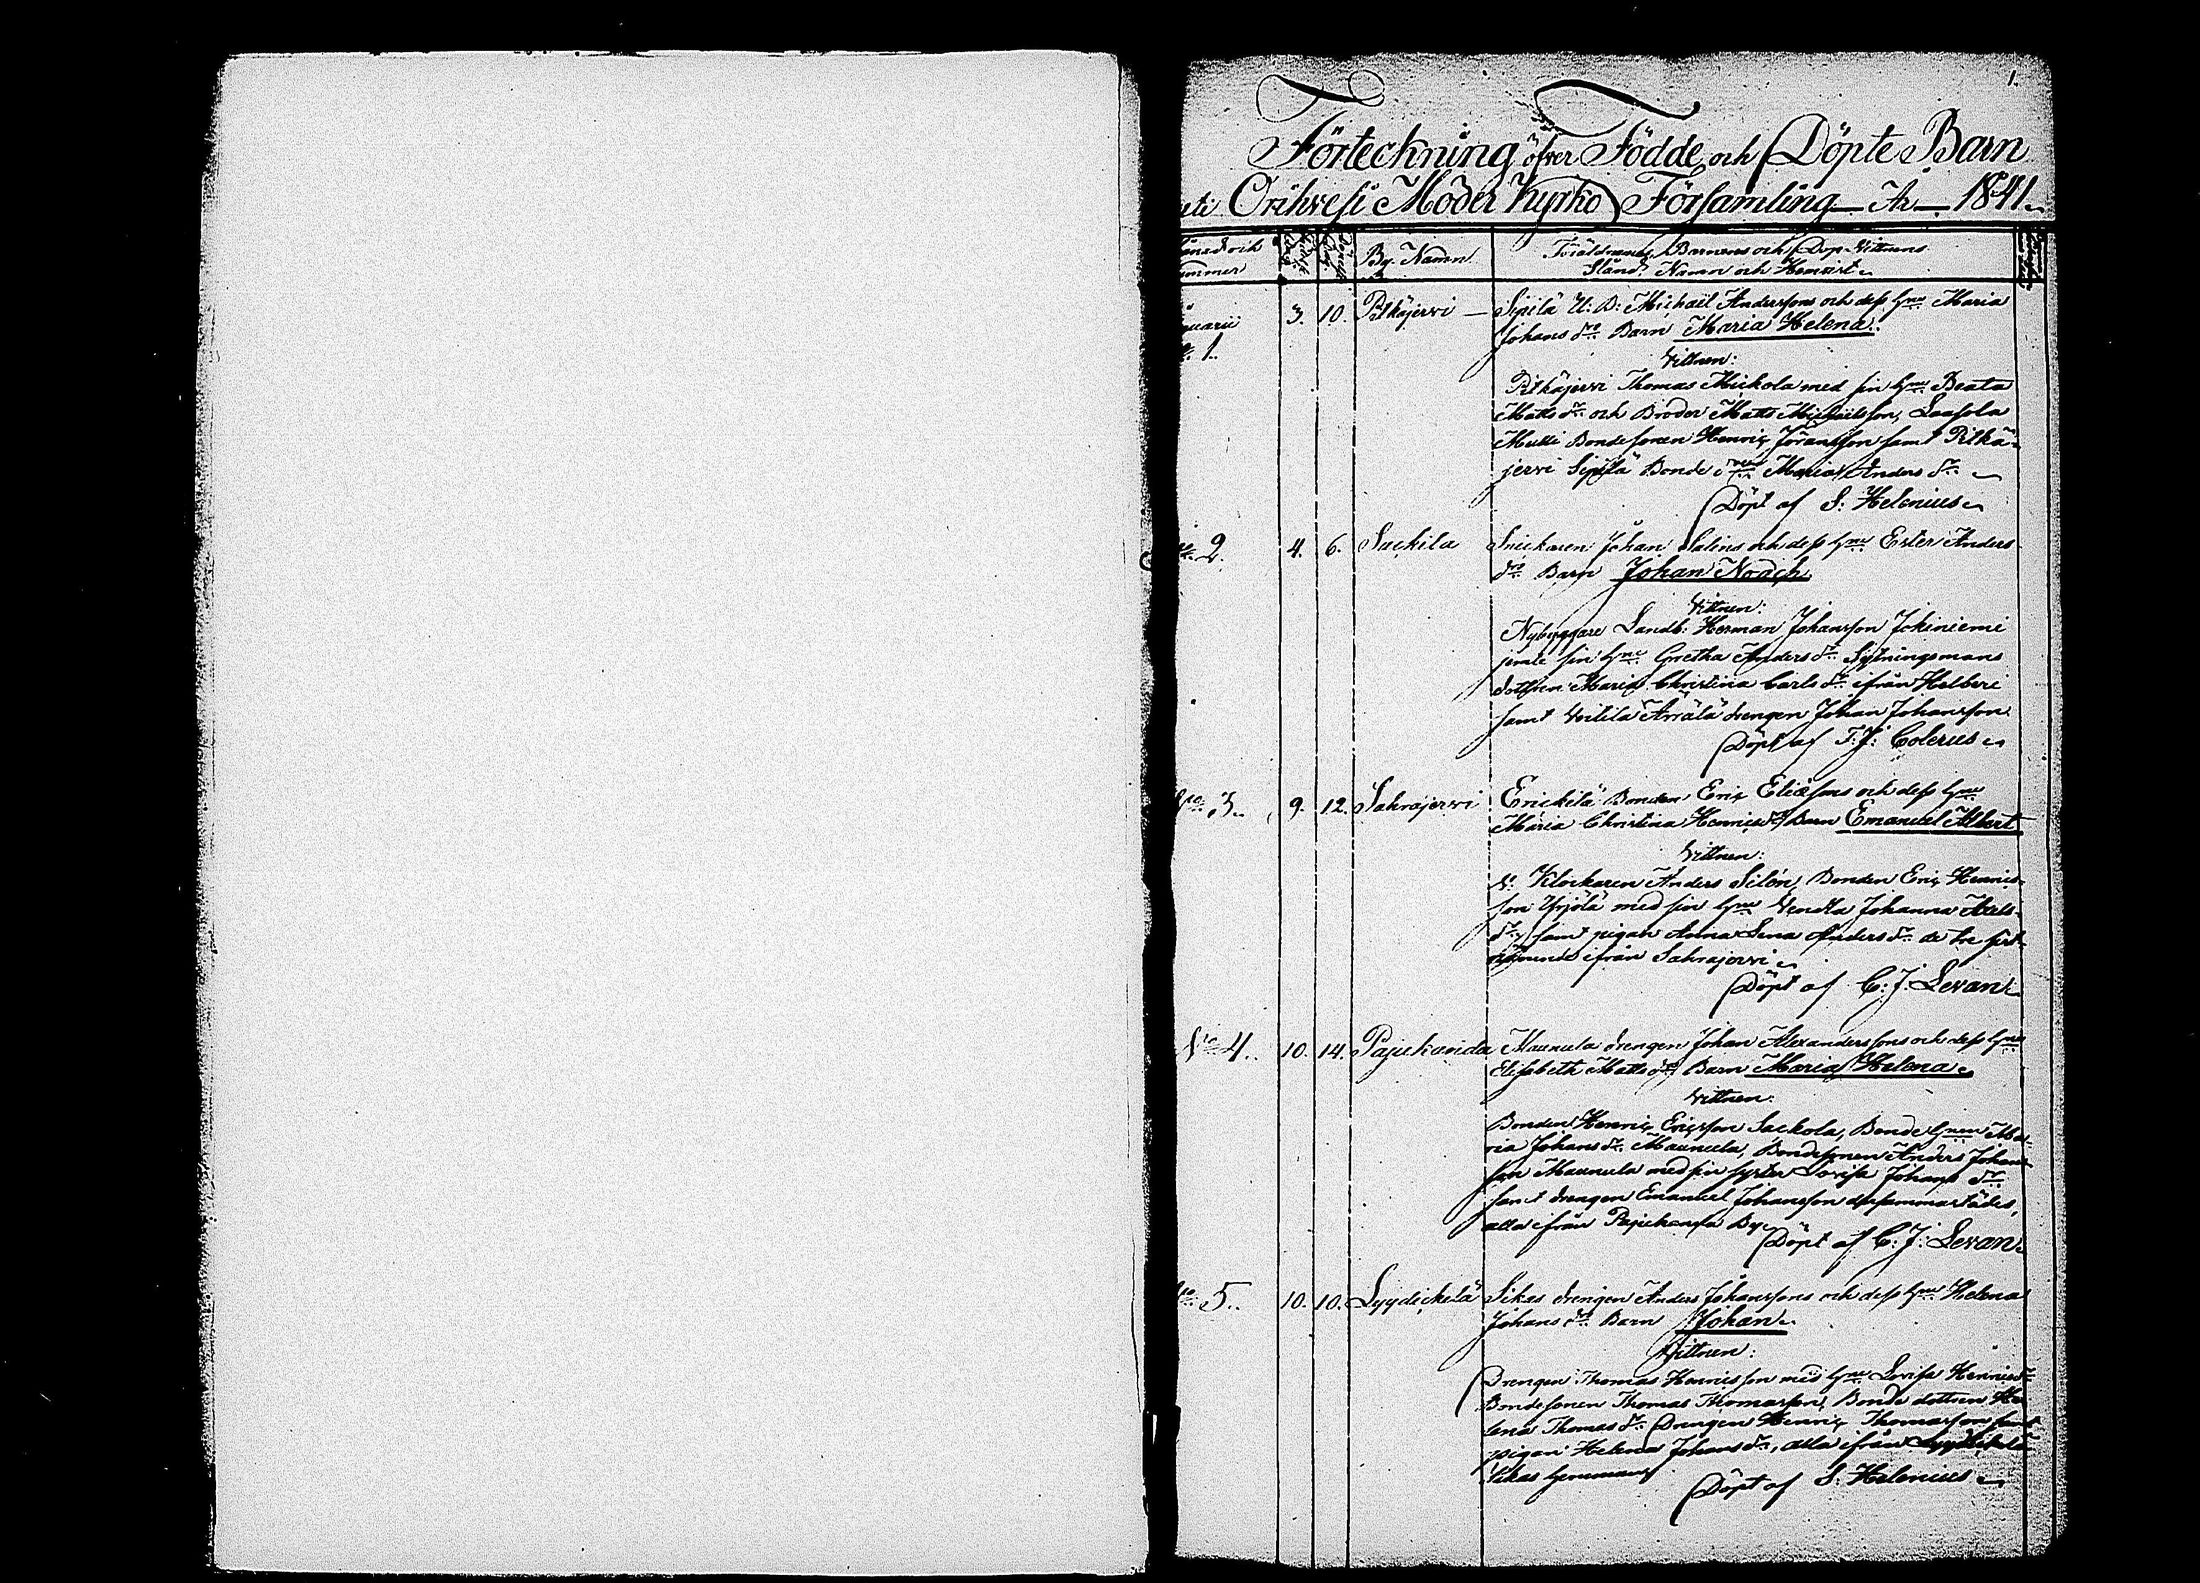 1.
Förteckning öfver Födde och Döpte Barn
uti Orihvesi Moder Kyrko Församling År 1841
By. Namn
Föräldrarnes, Barnens och Dop-Vittnens
Stånd, Namn och Hemvist
3. 10. Pitkäjervi — Sipilä U. B: Michael Anderssons och dess hu Maria
1. Johans dr Barn Maria Helena
Vittnen:
Pitkäjervi Thomas Mickola med sin hu Beata
Matts dr och Broder Matts Michailsson, Laasola
Mutti Bondesonen Henric Jöransson samt Pitkä-
jervi Sipilä Bonde Maria Anders dr
Döpt af S: Helenius
No 2. 4. 6. Sackila Snickaren Johan Salins och dess hu Ester Anders
drs Barn Johan Noach
Vittnen:
Nybyggare Landb: Herman Johansson Jokiniemi
jemte sin hu Gretha Anders dr Sytningsmans
dottren Maria Christina Carls dr ifrån
samt drengen Johan Johansson
Döpt af F: J: Colerus
No 3. 9. 12. Sahrajervi Erickilä Bonden Eric Eliæsons och dess hu
Maria Christina Henrics dr Barn Emanuel Albert
Vittnen:
V. Klockaren Anders Silén, Bonden Eric Henrics-
son Yrjölä med sin hu Vendla Johanna
dr, samt pigan Anna Lena Anders dr de tre sist-
nämnde ifrån Sahrajervi
Döpt af C: J: Levan
No 4. 10. 14. Pajukanda Maunula drengen Johan Alexanderssons och dess hu
Elisabeth Matts dr Barn Maria Helena
Vittnen:
Bonden Henric Ericsson Sackola, Bonde hun Ma-
ria Johans dr Maunula, Bondesonen Anders Johans-
son Maunula med sin syster Lovisa Johans dr
samt drengen Emanuel Johansson dersammastädes,
alla ifrån Pajukanda By
Döpt af C: J: Levan
No 5. 10. 10. Lyydickilä Sikas drengen Anders Johanssons och dess hu Helena
Johans dr Barn Johan
Vittnen:
Drengen Thomas Henricsson med hu Lovisa Henrics dr
Bondesonen Thomas Thomasson, Bonde dottren He-
lena Thomas dr Drengen Henric Thomasson samt
pigan Helena Johans dr, alla ifrån Lyydickilä
Sikas hemman
Döpt af S: Helenius